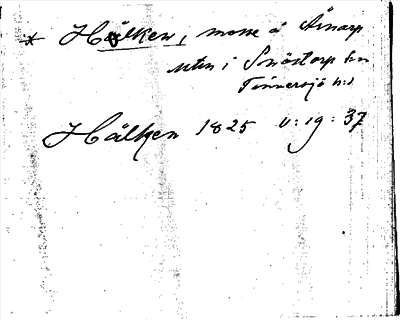 * Hålken, mosse å Årnarp
utm i Snöstorp sn
Tönnersjö hd
Hålken 1825 v: 19: 37